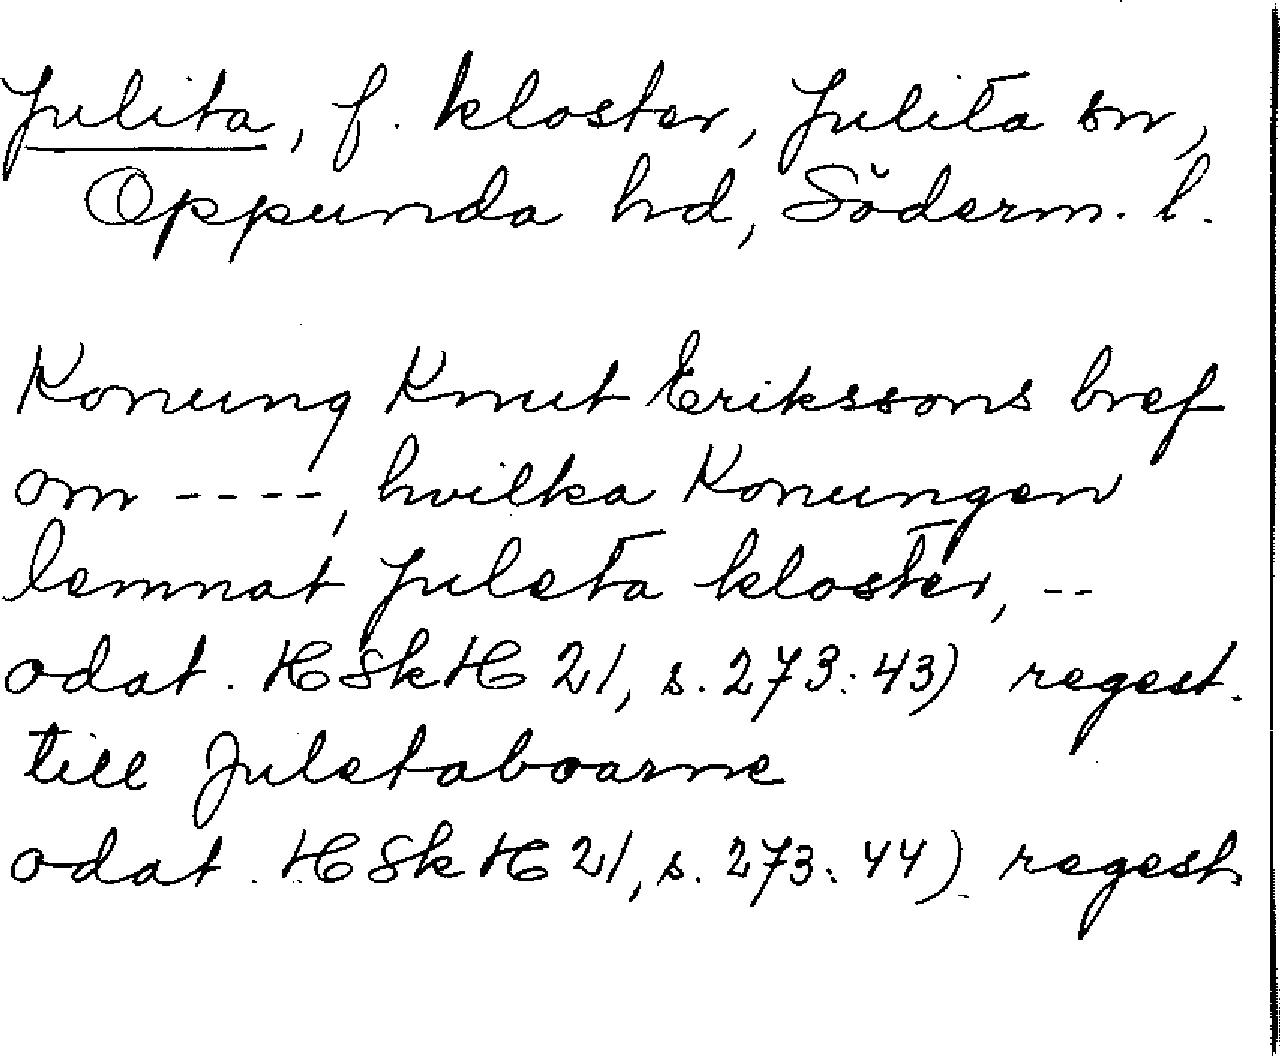 Julita, f. kloster, Julita sn,
Oppunda hd, Söderm. l.
Konung Knut Erikssons bref
om ----, hvilka Konungen
lemnat Juleta kloster, --
odat. HSkH 21, s. 273: 43) regest.
till Juletaboarne
odat. HSkH 21, s. 273: 44) regest.